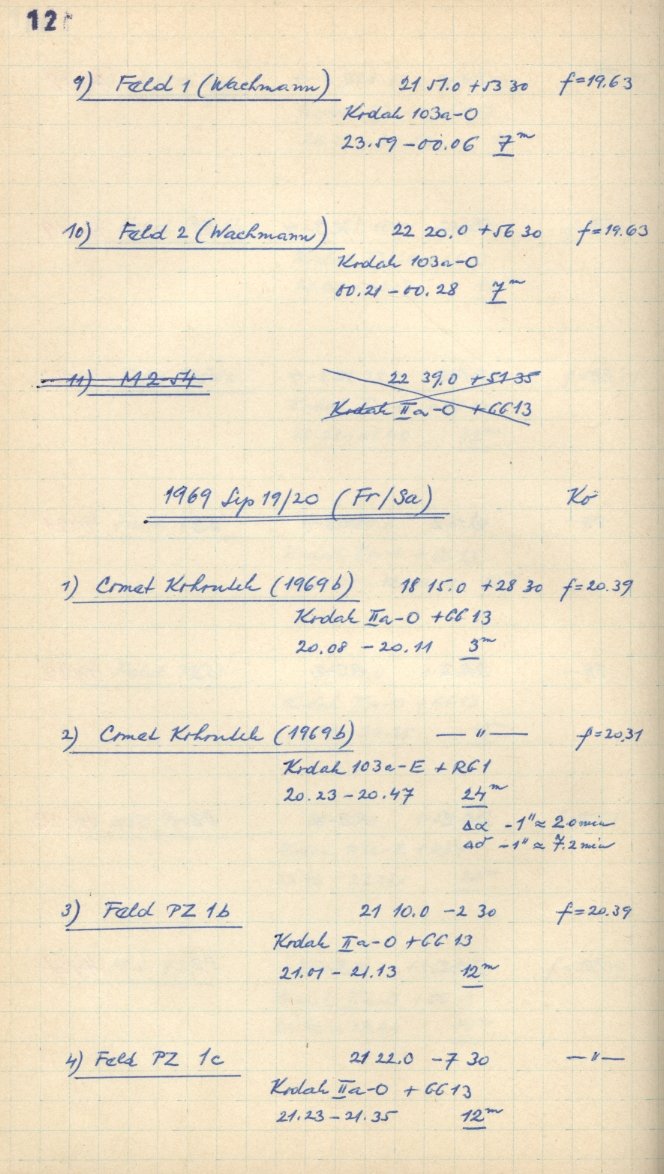 12
9) Feld 1 (Wachmann) 21 51.0 +53 30 f=19.63
Kodak 103a-O
23.59 – 00.06 7ᵐ
10) Feld 2 (Wachmann) 22 20.0 +56 30 f=19.63
Kodak 103a-O
00.21 – 00.28 7ᵐ
11) M2-54 22 39.0 +51 35
Kodak IIa-O +GG13
1969 Sep 19/20 (Fr/Sa) Ko
1) Comet Kohoutek (1969b) 18 15.0 +28 30 f=20.39
Kodak IIa-O +GG 13
20.08 – 20.11 3ᵐ
2) Comet Kohoutek (1969b) — " — f=20.31
Kodak 103a-E + RG1
20.23 – 20.47 24ᵐ
Δα – 1" ≈ 2.0 min
Δδ – 1" ≈ 7.2 min
3) Feld PZ 1b 21 10.0 –2 30 f=20.39
Kodak IIa-O +GG 13
21.01 – 21.13 12ᵐ
4) Feld PZ 1c 21 22.0 –7 30 — " —
Kodak IIa-O + GG13
21.23 – 21.35 12ᵐ